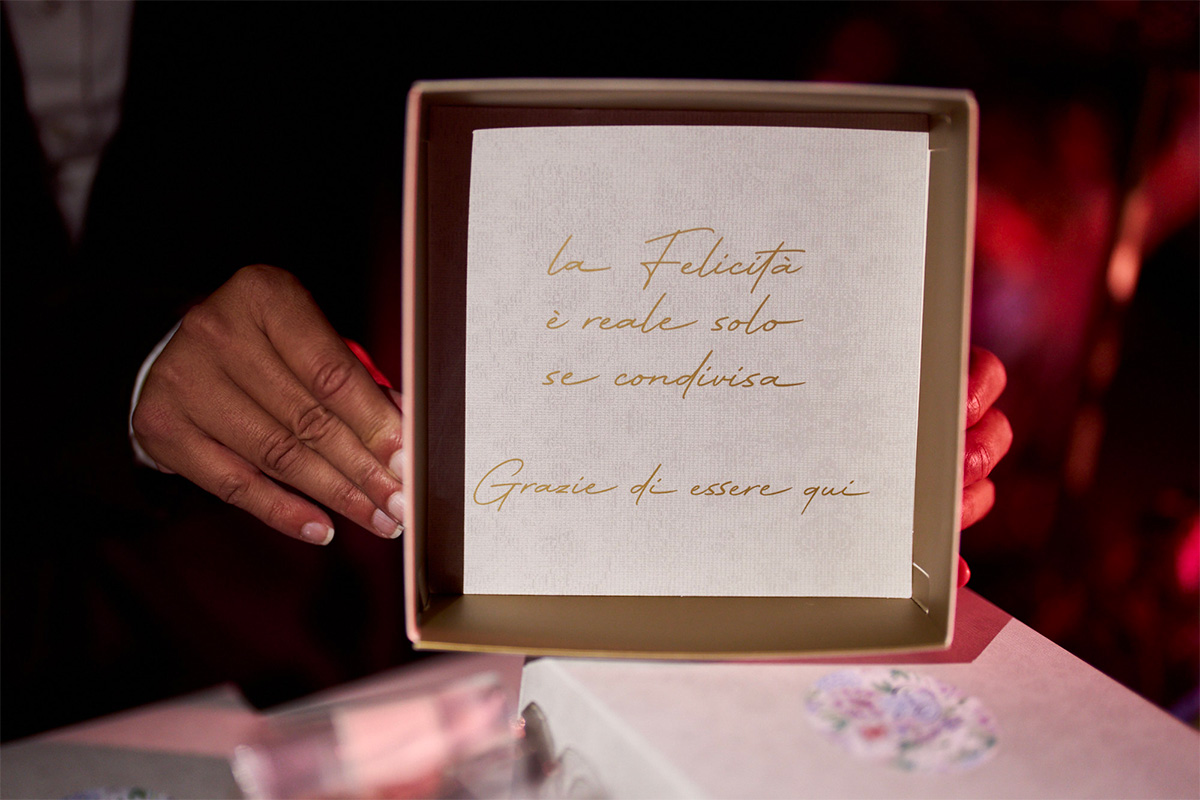 la Felicità
è reale solo
se condivisa
Grazie di essere qui